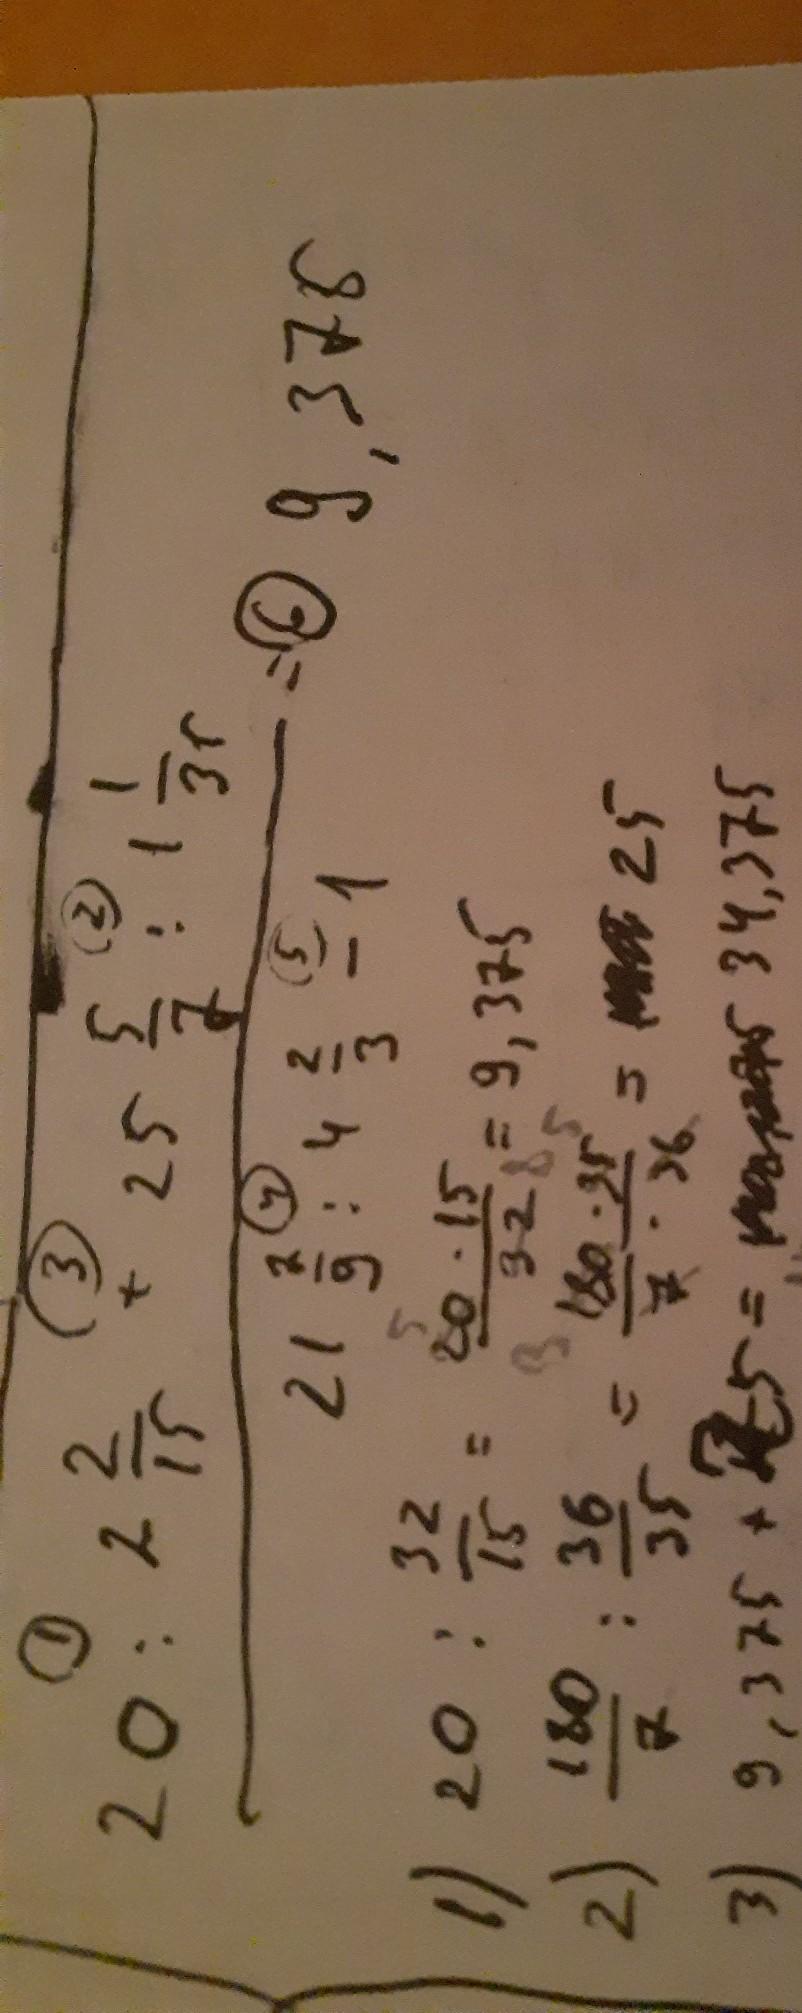 ① ③ ②
20 : 2 2/15 + 25 5/7 : 1 1/35
④ ⑤
21 2/9 : 4 2/3 - 1
= ⑥ 9,375
1) 20 : 32/15 = 20 · 15/32 = 9,375
2) 180/7 : 36/35 = 180 · 35/7 · 36 = 25
3) 9,375 + 25 = 34,375